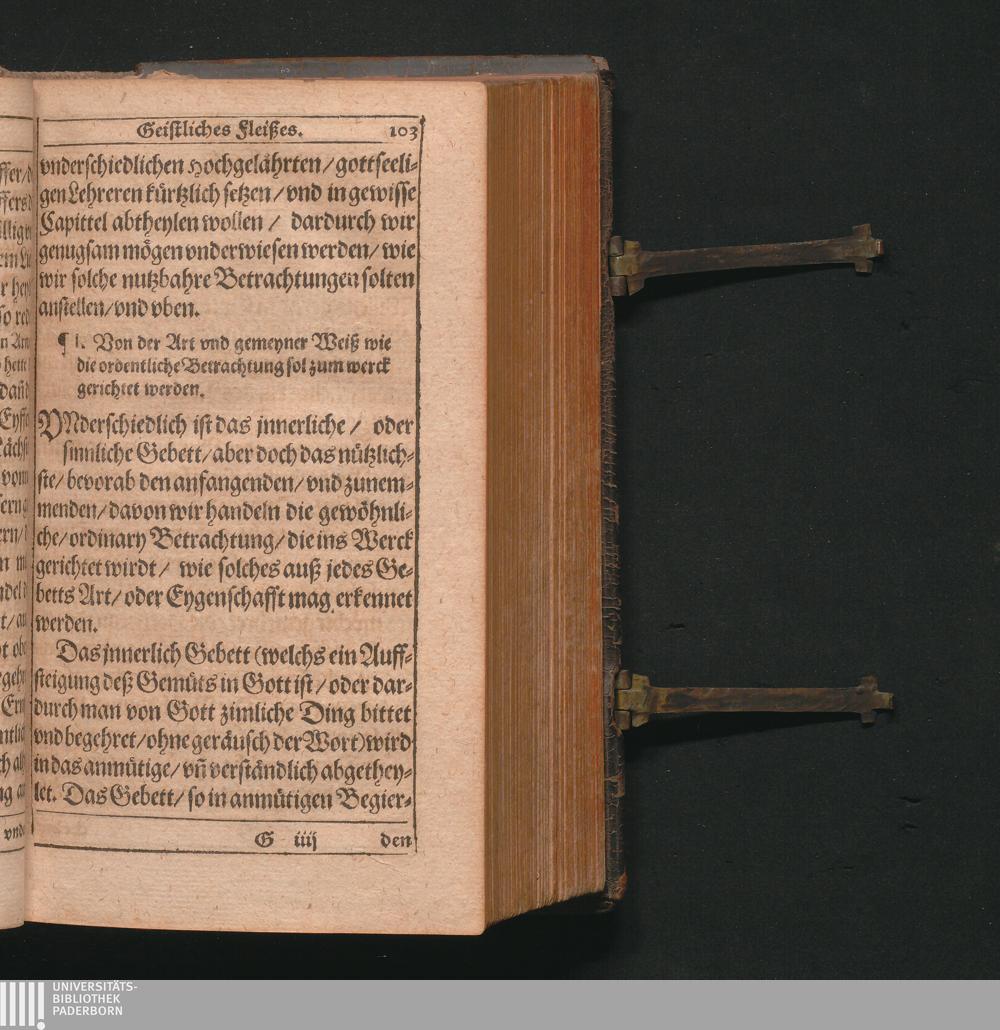 Geistliches Fleißes. 103
vnderschiedlichen hochgelährten/ gottseeli-
gen Lehreren kürtzlich setzen/ vnd in gewisse
Capittel abtheylen wollen / dardurch wir
genugsam mögen vnderwiesen werden/ wie
wir solche nutzbahre Betrachtungen solten
anstellen/ vnd vben.
¶ 1. Von der Art vnd gemeyner Weiß wie
die ordentliche Betrachtung sol zum werck
gerichtet werden.
VNderschiedlich ist das jnnerliche / oder
sinnliche Gebett/ aber doch das nützlich-
ste/ bevorab den anfangenden/ vnd zunem-
menden/ davon wir handeln die gewöhnli-
che/ ordinary Betrachtung/ die ins Werck
gerichtet wirdt/ wie solches auß jedes Ge-
betts Art/ oder Eygenschafft mag erkennet
werden.
Das jnnerlich Gebett (welchs ein Auff-
steigung deß Gemüts in Gott ist/ oder dar-
durch man von Gott zimliche Ding bittet
vnd begehret/ ohne geräusch der Wort) wird
in das anmütige/ vñ verständlich abgethey-
let. Das Gebett/ so in anmütigen Begier-
G iiij den
UNIVERSITÄTS-
BIBLIOTHEK
PADERBORN